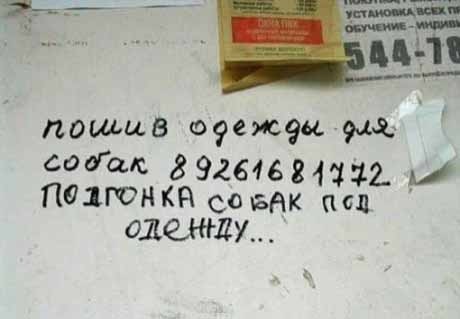 УСТАНОВКА, ВСЕХ
ОБУЧЕНИЕ - ИНДИВИ
544-78
пошив одежды для
собак 89261681772
ПОДГОНКА СОБАК ПОД
ОДЕЖДУ...